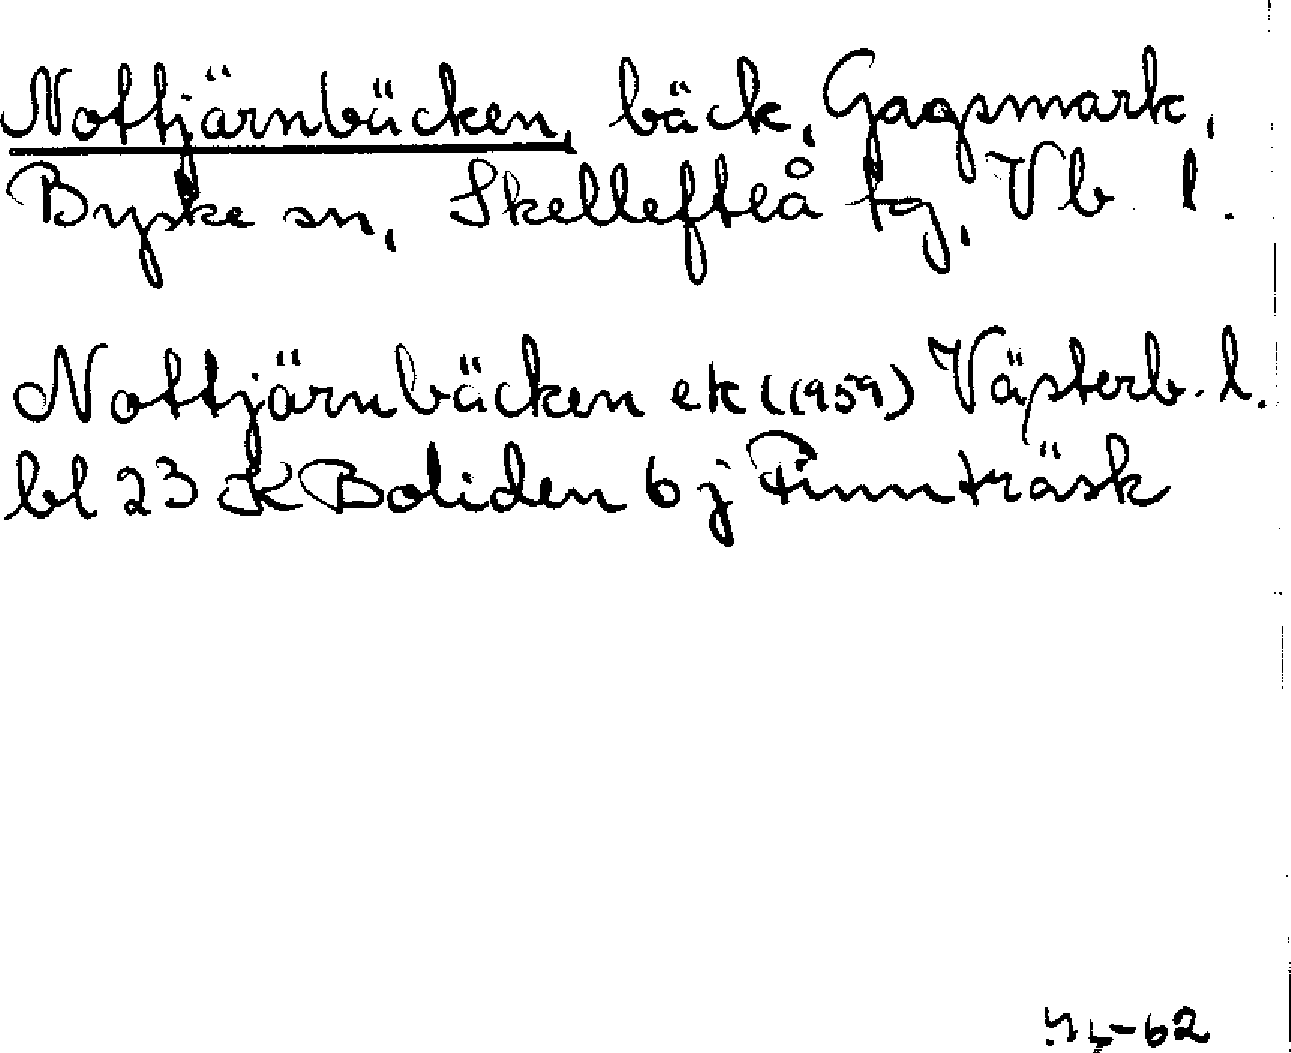 Nottjärnbäcken, bäck, Gagsmark,
Byske sn, Skellefteå tg, Vb l.
Nottjärnbäcken ek (1959) Västerb. l.
bl 23 K Boliden 6 j Finnträsk
-62